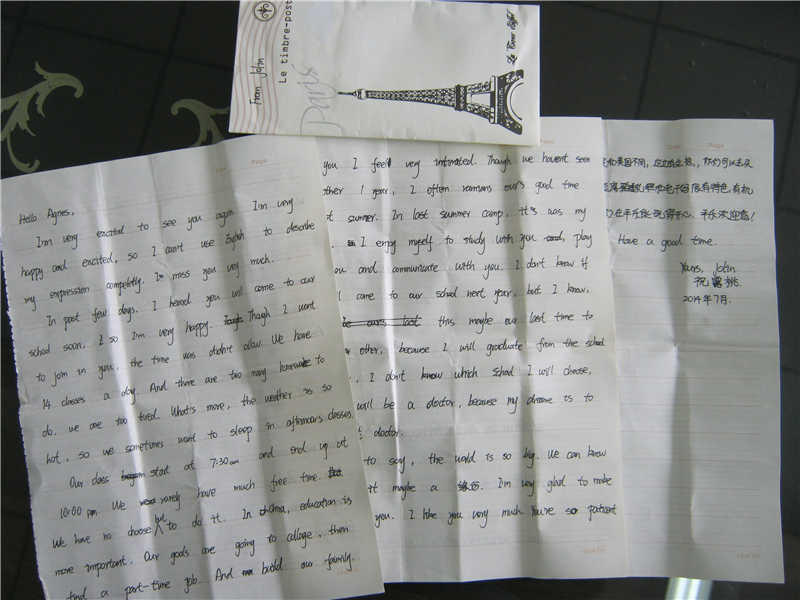 From John
Le timbre-post
Paris
La Tour Eiffel
Hello Agnes,
I'm very excited to see you again. I'm very
happy and excited, so I can't use English to describe
my expression competitly. I miss you very much.
In past few days, I heread you will come to our
school soon, so I'm very happy. Though I want
to join in you, the time was didn't allow. We have
14 classes a day. And there are too many homework to
do. we are too tired. What's more, the weather is so
hot, so we sometimes want to sleep in afternoon's classes.
Our class start at 7:30am and end up at
10:00 pm. We rarely have much free time.
We have no choose but to do it. In China, education is
more important. Our goals are going to college, then
find a part-time job. And build our family.
you I feel very intimated. Though we haven't seen
ther 1 year, I often remains our's good time
st summer. In last summer camp, it's was my
I enjoy myself to study with you, play
ou and communicate with you. I don't know if
I came to our school next year, but I know,
this maybe our last time to
other, because I will graduate from the school
I don't know which school I will choose,
will be a doctor, because my dreame is to
doctor.
to say, the world is so big. We can know
it maybe a 缘分. I'm very glad to make
you. I like you very much. You're so patient
和美国不同,
你们可以去
很有特色,有机
平乐欢迎您!
Have a good time.
Yours, John
祝
2014年7月.